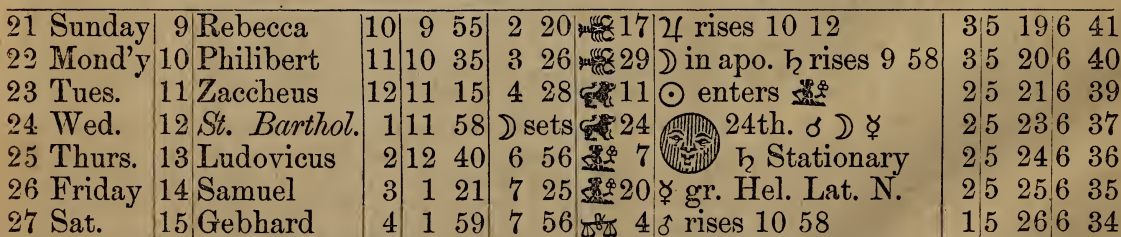 21 Sunday 9 Rebecca 10 9 55 2 20 ♋ 17 ♃ rises 10 12 3 5 19 6 41
22 Mond'y 10 Philibert 11 10 35 3 26 ♋ 29 ☽ in apo. ♄ rises 9 58 3 5 20 6 40
23 Tues. 11 Zaccheus 12 11 15 4 28 ♌ 11 ☉ enters ♍ 2 5 21 6 39
24 Wed. 12 St. Barthol. 1 11 58 ☽ sets ♌ 24 24th. ☌ ☽ ☿ 2 5 23 6 37
25 Thurs. 13 Ludovicus 2 12 40 6 56 ♍ 7 ♄ Stationary 2 5 24 6 36
26 Friday 14 Samuel 3 1 21 7 25 ♍ 20 ☿ gr. Hel. Lat. N. 2 5 25 6 35
27 Sat. 15 Gebhard 4 1 59 7 56 ♎ 4 ♂ rises 10 58 1 5 26 6 34